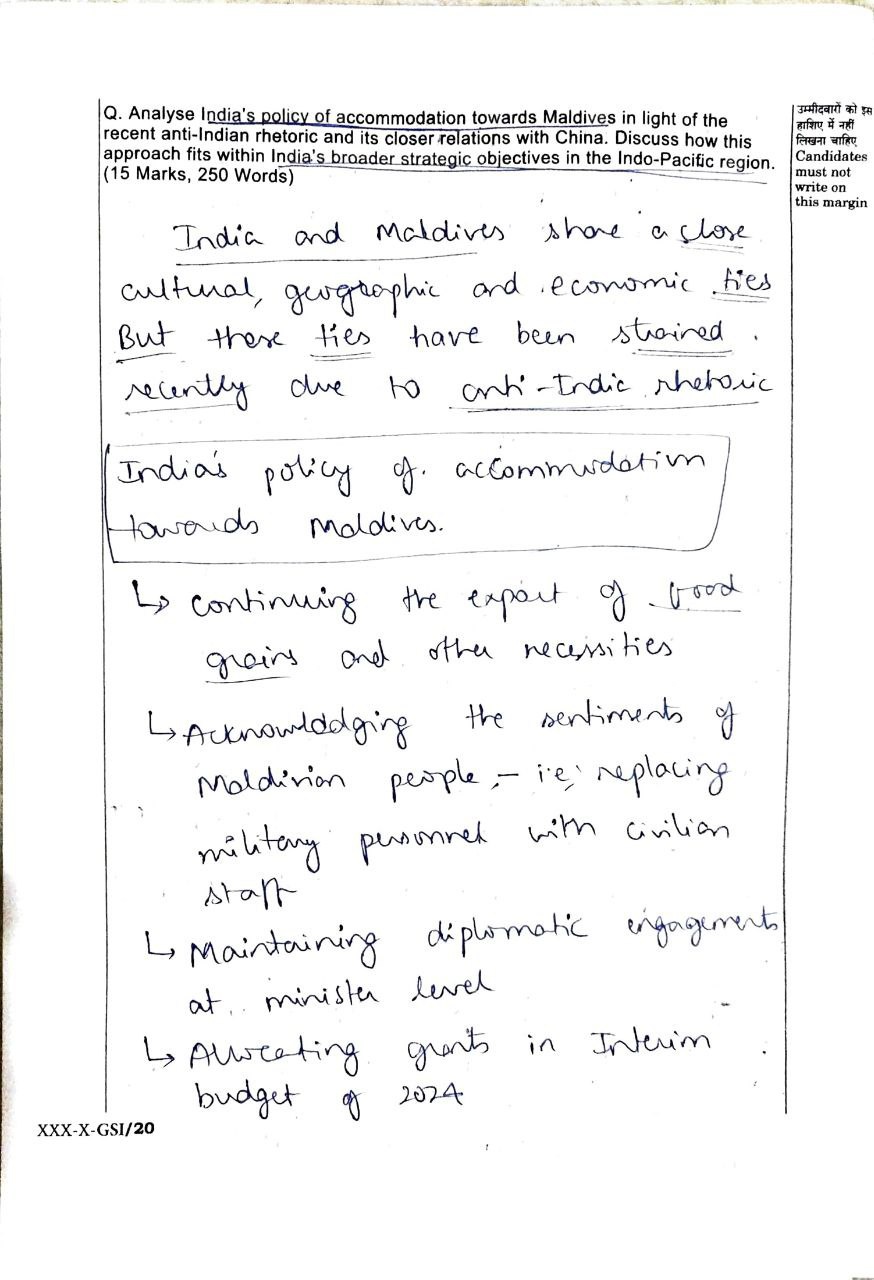 Q. Analyse India's policy of accommodation towards Maldives in light of the
recent anti-Indian rhetoric and its closer relations with China. Discuss how this
approach fits within India's broader strategic objectives in the Indo-Pacific region.
(15 Marks, 250 Words)
उम्मीदवारों को इस
हाशिए में नहीं
लिखना चाहिए
Candidates
must not
write on
this margin
India and Maldives share a close
cultural, geographic and economic ties
But these ties have been strained.
recently due to anti-India rhetoric
India's policy of accommodation
towards Maldives.
↳ continuing the export of food
grains and other necessities
↳ Acknowlddging the sentiments of
Maldivian people, - i.e; replacing
military personnel with civilian
staff
↳ Maintaining diplomatic engagements
at minister level
↳ Allocating grants in Interim
budget of 2024
XXX-X-GSI/20